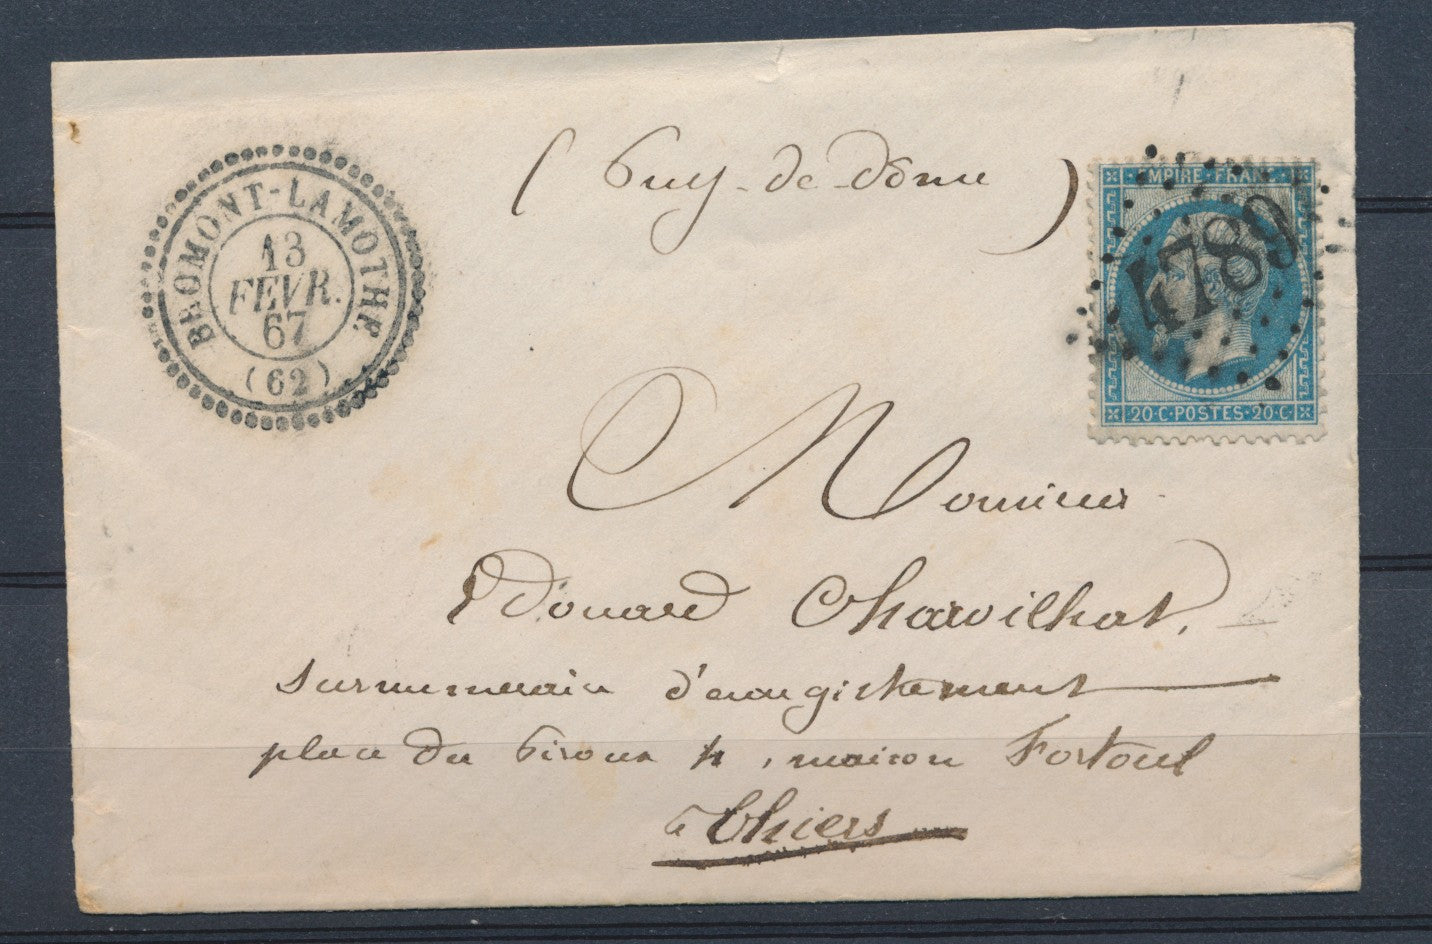 ( Puy-de-dôme )
BROMONT-LAMOTHE
13
FEVR.
67
(62)
MPIRE FRANC
4789
20·C·POSTES·20·C
Monsieur
Edouard Charvilhat,
surnumerain d'enregistrement
place du Piroux 4, maison Fortoul
a Thiers